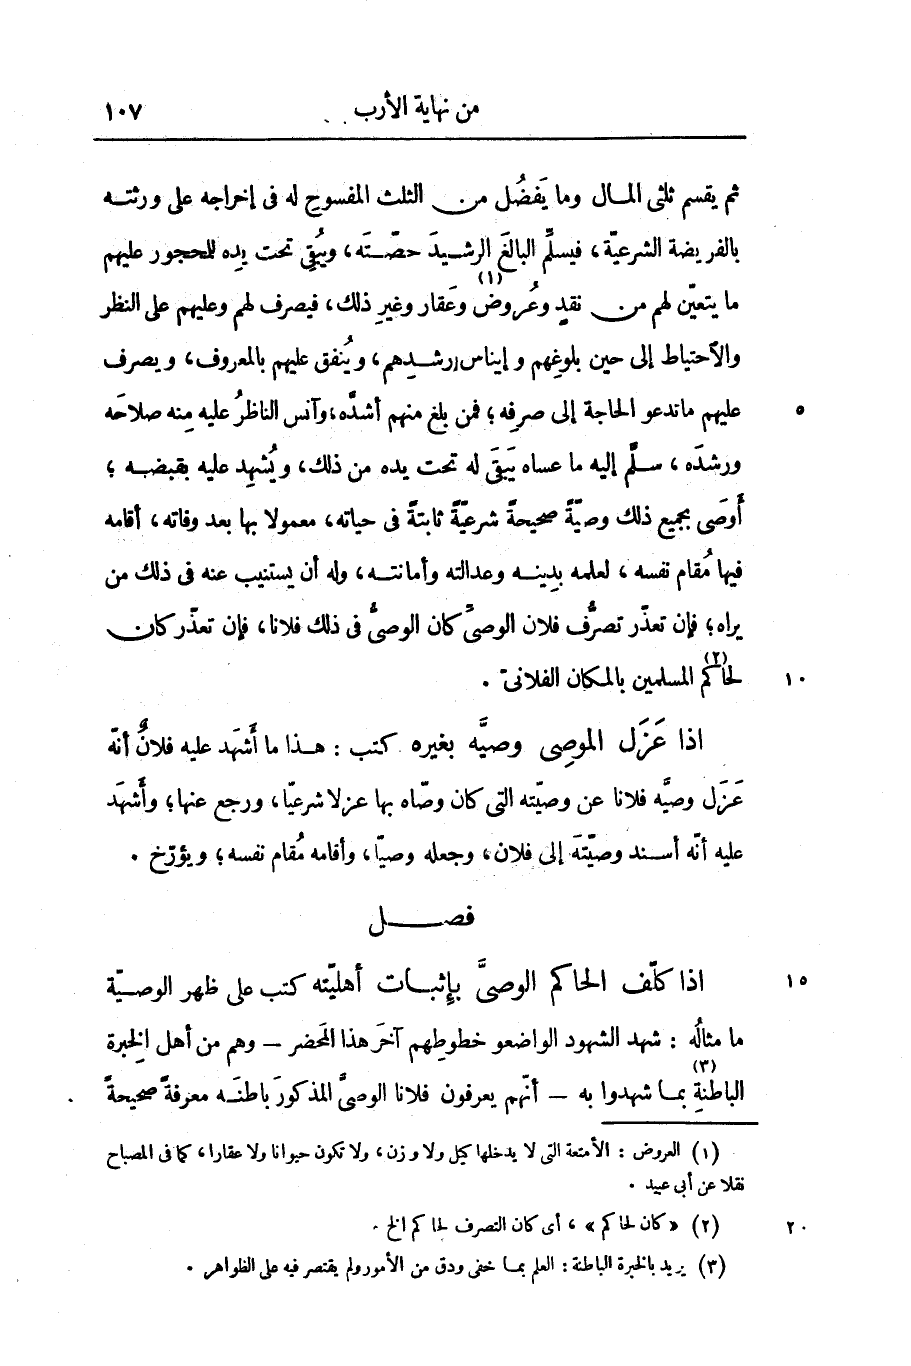 من نهاية الأرب ١٠٧
ثم يقسم ثلثى المـال وما يَفضُل من الثلث المفسوح له فى إخراجه على ورثتـه
بالفريضة الشرعيّة، فيسلِّم البالغَ الرشـيدَ حصّـتَه، ويُبقِى تحت يده للحجور عليهم
ما يتعيّن لهم من نقدٍ وعُروض (١) وعَقار وغيرِ ذلك، فيصرف لهم وعليهم على النظر
والاحتياط إلى حين بلوغِهم وإيناس رشـدِهم، ويُنفق عليهم بالمعروف، ويصرف
عليهم ماتدعو الحاجة إلى صرفِه؛ فمن بلغ منهم أشدَّه، وآنس الناظرُ عليه مِنه صلاحَه ٥
ورشدَه، سـلَّم إليه ما عساه يَبقَى له تحت يده من ذلك، ويُشهِد عليه بقبضـه؛
أَوصَى بجميع ذلك وصيّةً صحيحةً شرعيّةً ثابتةً فى حياته، معمولا بها بعد وفاته، أقامه
فيها مُقام نفسه، لعلمه بدِينـه وعدالته وأمانتـه، وله أن يستنيب عنه فى ذلك من
يراه؛ فإن تعذّر تصرُّف فلان الوصىّ كان الوصىُّ فى ذلك فلانا، فإن تعذّر كان
لحاكم (٢) المسلمين بالمكان الفلانىّ. ١٠
اذا عَزَل الموصِى وصيَّه بغيره كتب : هـذا ما أَشهَد عليه فلانٌ أنّه
عَزَل وصيَّه فلانا عن وصيّته التى كان وصّاه بها عزلا شرعيّا، ورجع عنها؛ وأَشهَد
عليه أنّه أسـند وصيّتَه إلى فلان، وجعله وصيّا، وأقامه مُقام نفسه؛ ويؤرّخ.
فصـــل
اذا كلّف الحاكم الوصىَّ بإثبـات أهليّته كتب على ظهر الوصـيّة ١٥
ما مثالُه : شهد الشهود الواضعو خطوطِهم آخرَ هذا المَحضر — وهم من أهل الخِبرة
الباطنةِ (٣) بمـا شهدوا به — أنّهم يعرفون فلانا الوصىَّ المذكورَ باطنَـه معرفةً صحيحةً
(١) العروض : الأمتعة التى لا يدخلها كيل ولا وزن، ولا تكون حيوانا ولا عقارا، كما فى المصباح
نقلا عن أبى عبيد.
(٢) «كان لحاكم»، أى كان التصرف لحاكم الخ. ٢٠
(٣) يريد بالخبرة الباطنة : العلم بمـا خفى ودق من الأمور ولم يقتصر فيه على الظواهر.